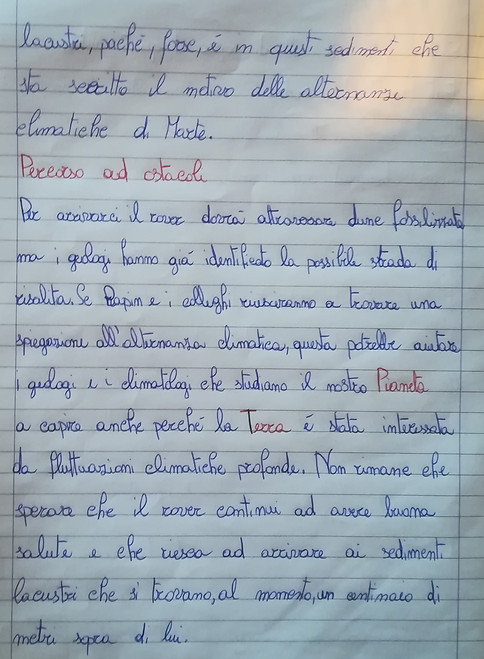 lacustri, perché, forse, è in questi sedimenti che
sta scritto il motivo delle alternanze
climatiche di Marte.
Percorso ad ostacoli
Per arrivarci il rover dovrà attraversare dune fossilizzate
ma i geologi hanno già identificato la possibile strada di
risalita. Se Rapin e i colleghi riusciranno a trovare una
spiegazione all'alternanza climatica, questa potrebbe aiutare
i geologi e i climatologi che studiano il nostro Pianeta
a capire anche perché la Terra è stata interessata
da fluttuazioni climatiche profonde. Non rimane che
sperare che il rover continui ad avere buona
salute e che riesca ad arrivare ai sedimenti
lacustri che si trovano, al momento, un centinaio di
metri sopra di lui.